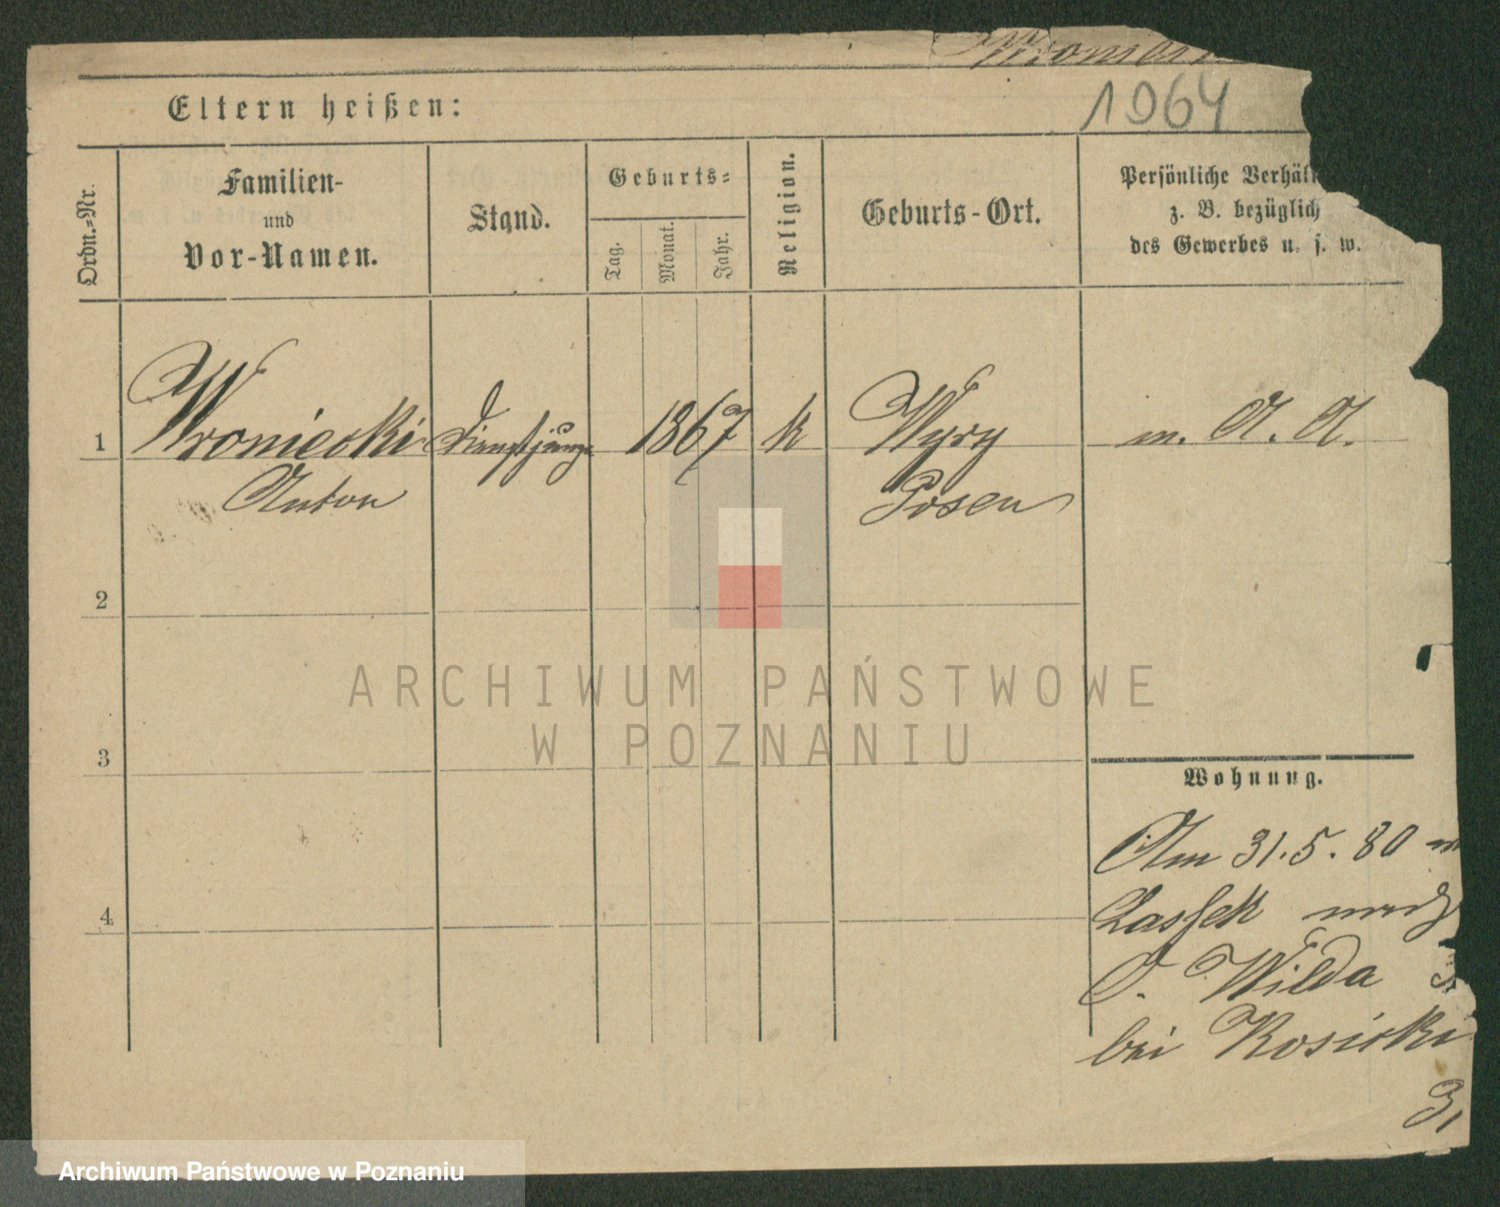 1964
Eltern heißen:
Ordn.-Nr.
Familien-
und
Vor-Namen.
Stand.
Geburts-
Tag.
Monat.
Jahr.
Religion.
Geburts-Ort.
Persönliche Verhäl
z. B. bezüglich
des Gewerbes u. s. w.
1 Wroniecki Dienstjunge 1867 k Wyry m. A. A.
Anton Posen
2
3
4
Wohnung.
Am 31.5.80
Lassek nach
O. Wilda
bei Kosicki
ARCHIWUM PAŃSTWOWE
W POZNANIU
Archiwum Państwowe w Poznaniu